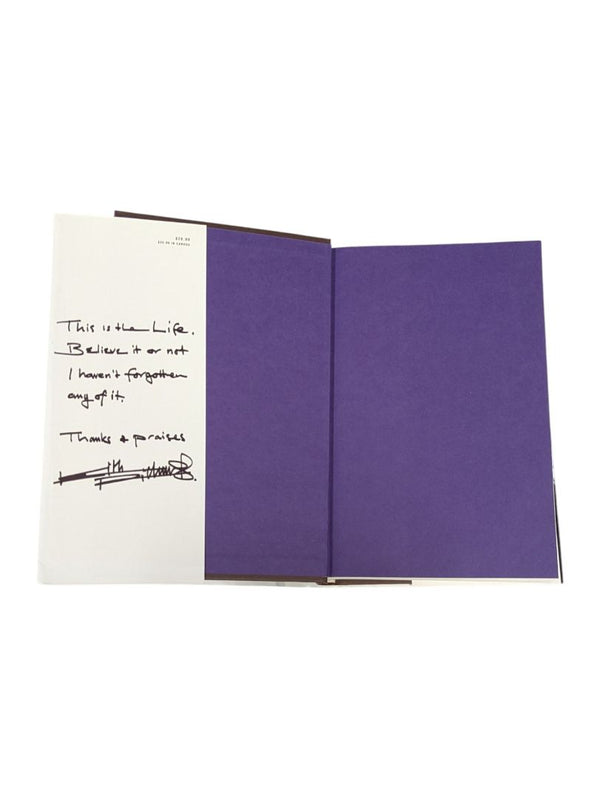 $29.99
This is the Life.
Believe it or not
I haven't forgotten
any of it.
Thanks & praises